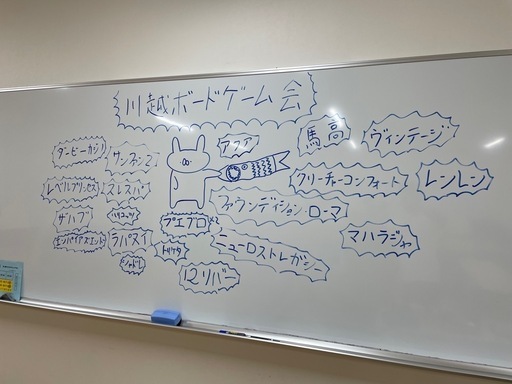 川越ボードゲーム会
アクア
馬高
ヴィンテージ
ダービーカジノ
サンファンス
レベルプリンセス
クリーチャーコンフォート
レンレン
ザハブ
ファウンディション・ローマ
プエブロ
エンパイアズエンド
ラパスイ
ニューロストレガシー
マハラジャ
トリケタ
12リバー